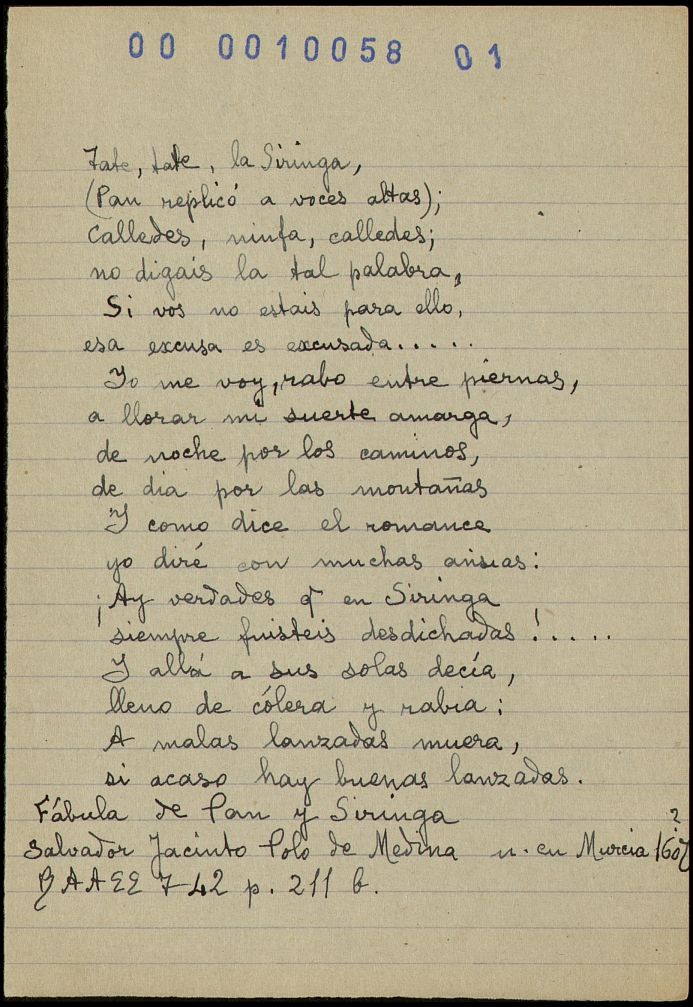 00 0010058 01
Tate, tate, la Siringa,
(Pan replicó a voces altas);
Calledes, ninfa, calledes;
no digais la tal palabra,
Si vos no estais para ello,
esa excusa es excusada.....
Yo me voy, rabo entre piernas,
a llorar mi suerte amarga,
de noche por los caminos,
de dia por las montañas
Y como dice el romance
yo diré con muchas ansias:
¡Ay verdades q en Siringa
siempre fuisteis desdichadas!.....
Y allá a sus solas decía,
lleno de cólera y rabia:
A malas lanzadas muera,
si acaso hay buenas lanzadas.
Fábula de Pan y Siringa
Salvador Jacinto Polo de Medina n. en Murcia 1607?
BAAEE T 42 p. 211 b.